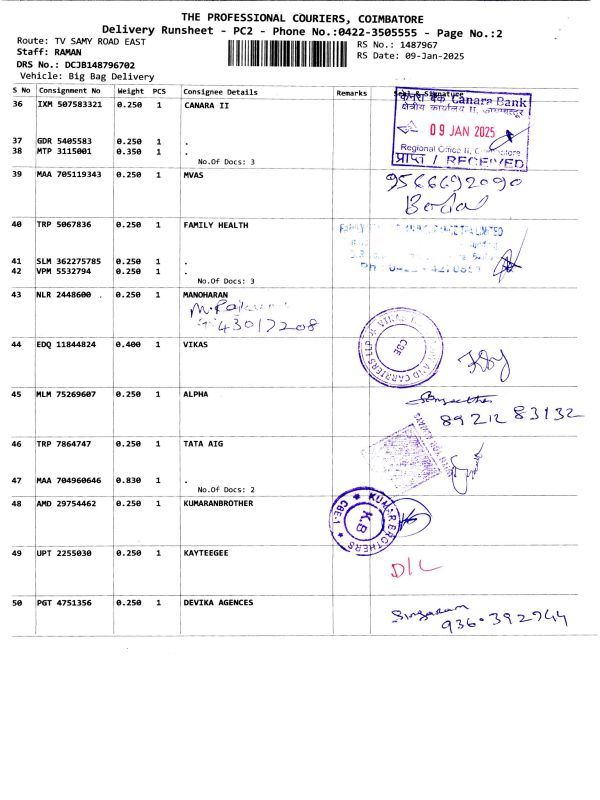 THE PROFESSIONAL COURIERS, COIMBATORE
Delivery Runsheet - PC2 - Phone No.:0422-3505555 - Page No.:2
Route: TV SAMY ROAD EAST
RS No.: 1487967
Staff: RAMAN
RS Date: 09-Jan-2025
DRS No.: DCJB148796702
Vehicle: Big Bag Delivery
S No Consignment No Weight PCS Consignee Details Remarks Seal & Signature
36 IXM 507583321 0.250 1 CANARA II
केनरा बैंक Canara Bank
क्षेत्रीय कार्यालय II,
09 JAN 2025
Regional Office II,
प्राप्त / RECEIVED
37 GDR 5405583 0.250 1 .
38 MTP 3115001 0.350 1 .
No.Of Docs: 3
39 MAA 705119343 0.250 1 MVAS
9566692090
40 TRP 5067836 0.250 1 FAMILY HEALTH
FAMILY TPA LIMITED
41 SLM 362275785 0.250 1 .
42 VPM 5532794 0.250 1 .
No.Of Docs: 3
43 NLR 2448600 . 0.250 1 MANOHARAN
43017208
44 EDQ 11844824 0.400 1 VIKAS
VIKAS AND CARRIERS LLP
CBE
45 MLM 75269607 0.250 1 ALPHA
89212 83132
46 TRP 7864747 0.250 1 TATA AIG
47 MAA 704960646 0.830 1 .
No.Of Docs: 2
48 AMD 29754462 0.250 1 KUMARANBROTHER
KUMAR BROTHERS
K.B
CBE-1
49 UPT 2255030 0.250 1 KAYTEEGEE
D/L
50 PGT 4751356 0.250 1 DEVIKA AGENCES
Singaram
936.392944